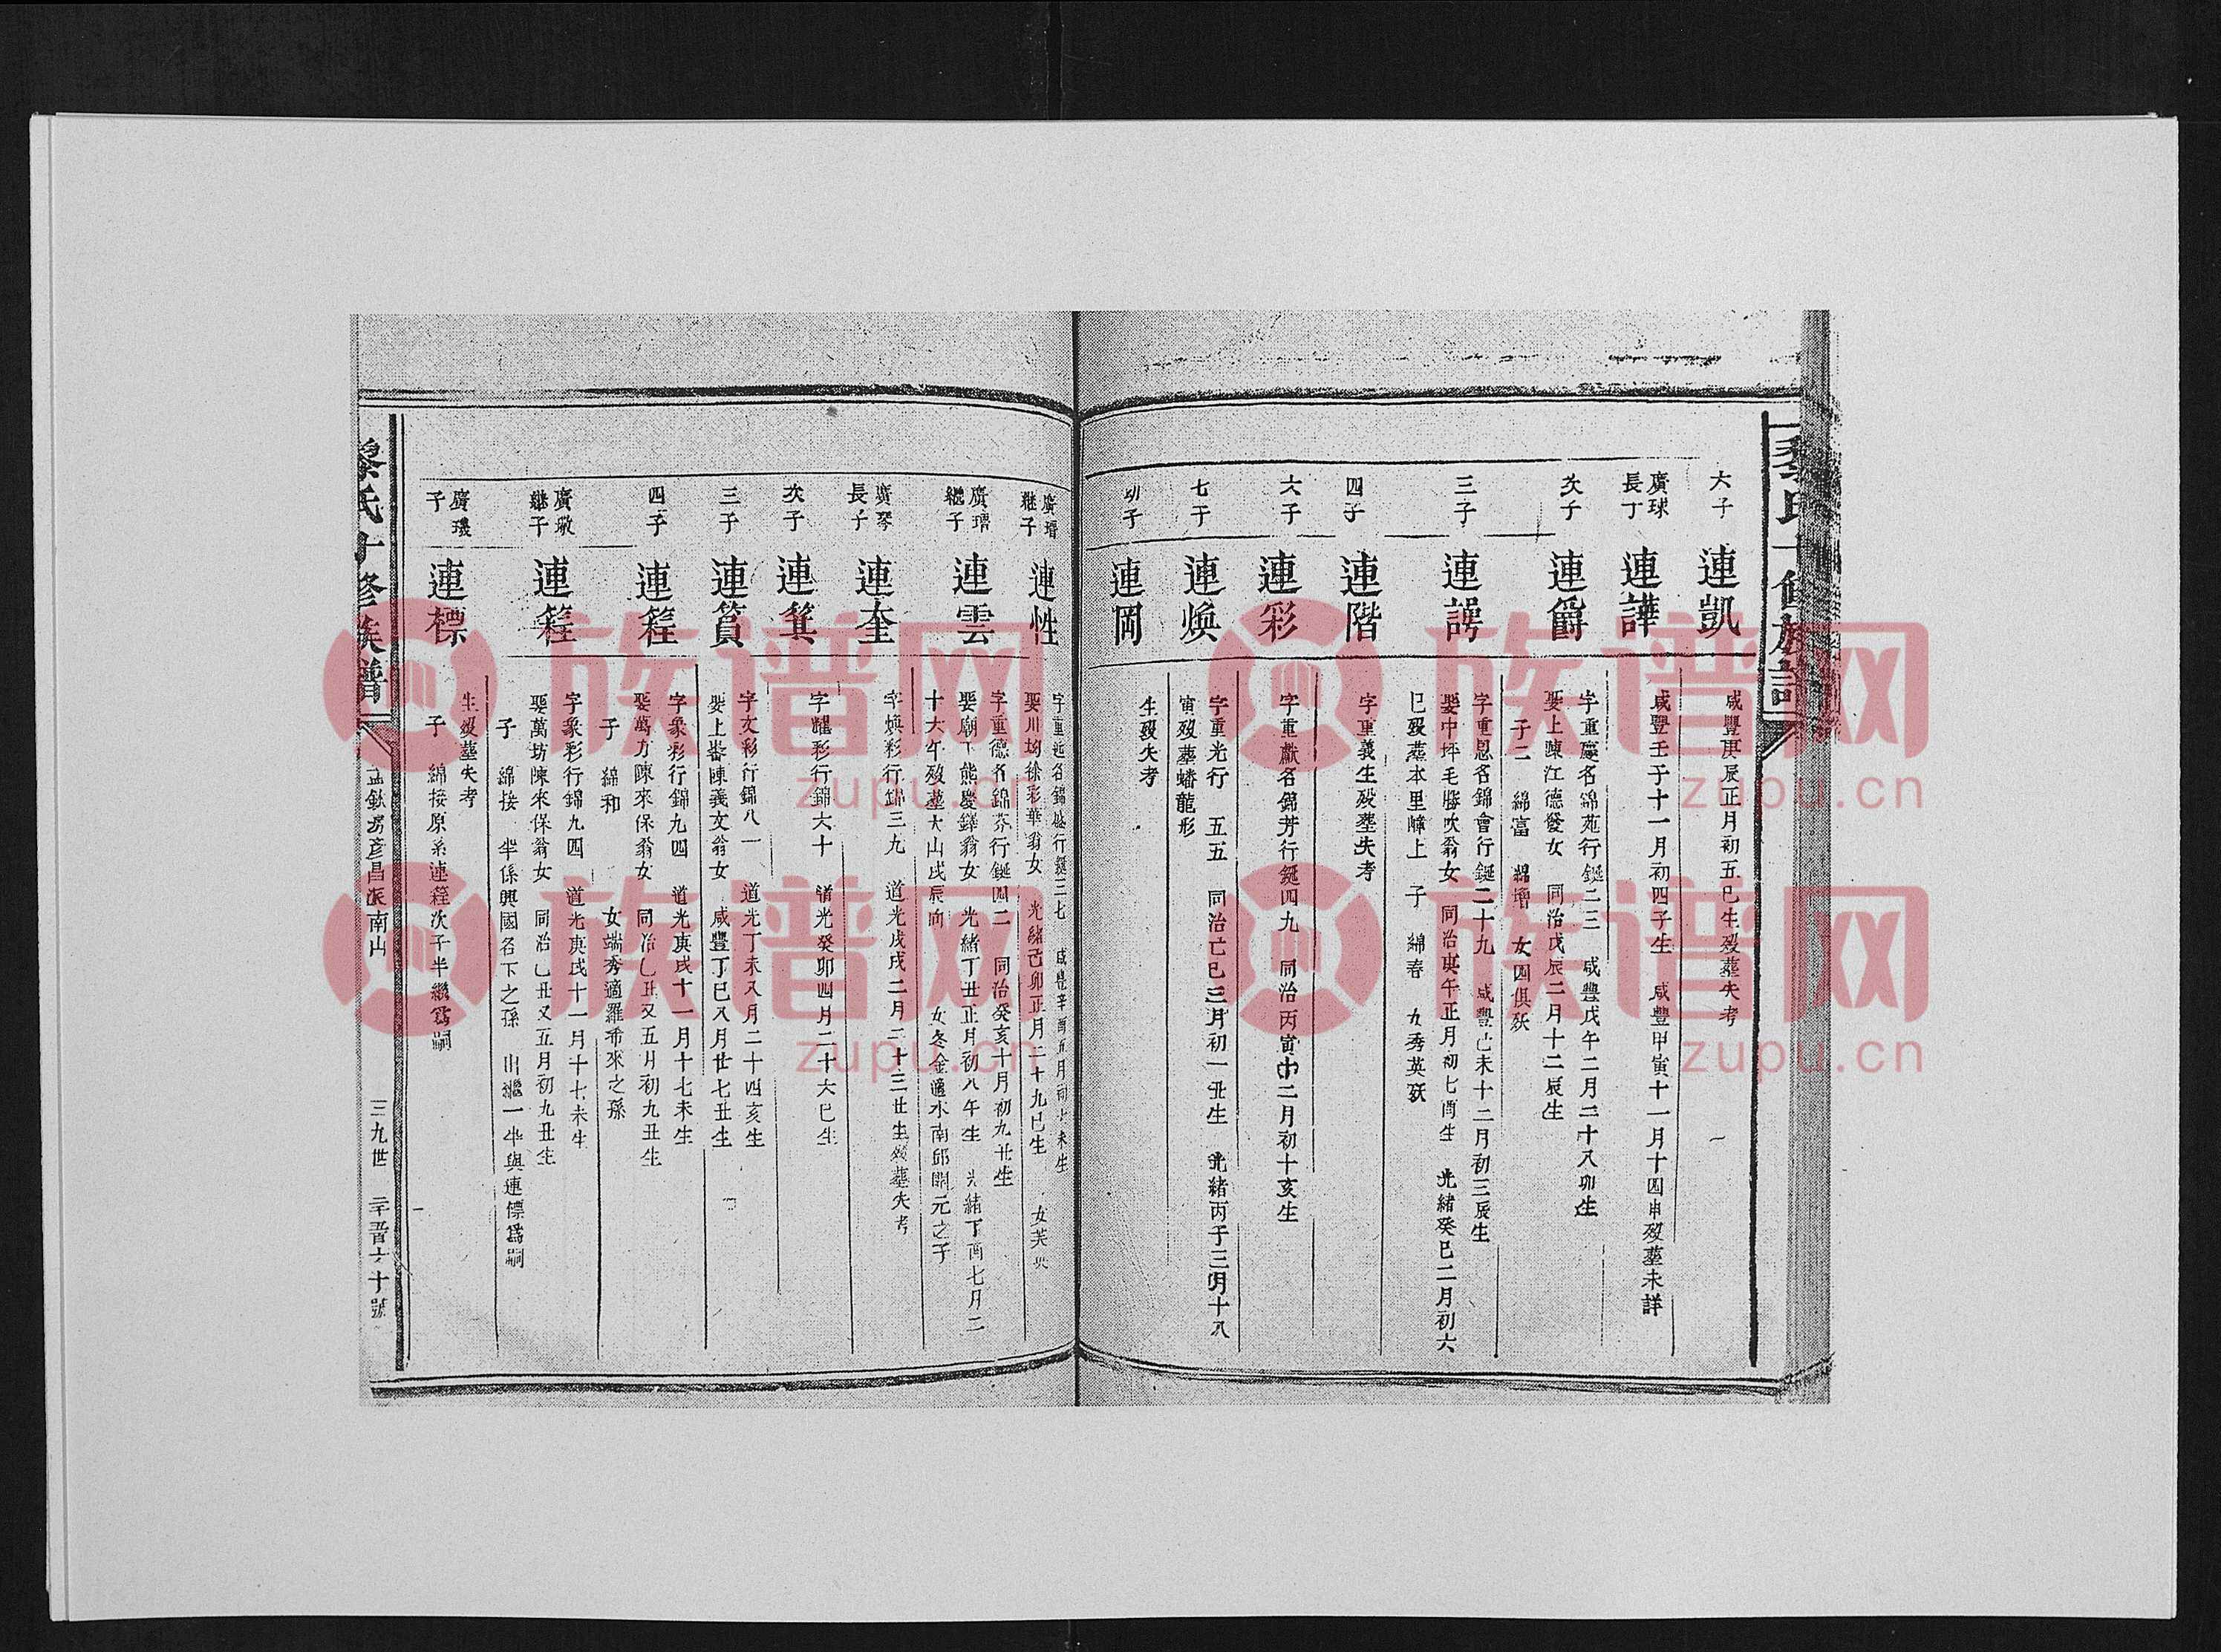 六子
連凱
咸豐庚辰正月初五巳生歿塟失考
廣球
長丁
連譁
咸豐壬子十一月初四子生 咸豐甲寅十一月十四申歿塟未詳
次子
連爵
字重慶名綿苑行鋋二三 咸豐戊午二月二十八卯生
娶上陳江德發女 同治戊辰二月十二辰生
子二 綿富 綿增 女四俱殀
三子
連諤
字重恩名錦會行鋋二十九 咸豐己未十二月初三辰生
娶中坪毛勝吹翁女 同治庚午正月初七酉生 光緒癸巳二月初六
巳歿塟本里嶂上 子 綿春 女秀英殀
四子
連階
字重義生歿塟失考
六子
連彩
字重獻名錦芳行鋋四九 同治丙寅 二月初十亥生
七子
連煥
字重光行 五五 同治己巳三月初一丑生 光緒丙子三月十八
寅歿塟蟠龍形
幼子
連岡
生歿失考
廣瑨
繼子
連性
娶川坳徐彩華翁女 光緒己卯正月二十九巳生 女芙
廣瑨
繼子
連雲
字重德名錦芬行鋋四二 同治癸亥十月初九丑生
娶廟下熊慶鐸翁女 光緒丁丑正月初八午生 光緒丁酉七月二
十六午歿塟大山戌辰向 女冬金適水南邱開元之子
廣琴
長子
連奎
字煥彩行錦三九 道光戊戌二月二十三丑生歿塟失考
次子
連箕
字耀彩行錦六十 道光癸卯四月二十六巳生
三子
連篔
字文彩行錦八一 道光丁未八月二十四亥生
娶上畨陳義文翁女 咸豐丁巳八月廿七丑生
四子
連程
字象彩行錦九四 道光庚戌十一月十七未生
娶萬方陳來保翁女 同治乙丑又五月初九丑生
子 綿和 女端秀適羅希來之孫
廣璈
繼子
連程
字象彩行錦九四 道光庚戌十一月十七未生
娶萬坊陳來保翁女 同治乙丑又五月初九丑生
子 綿接 半係興國名下之孫 出繼一半與連標爲嗣
廣璣
子
連標
生歿塟失考
子 綿接原系連程次子半繼爲嗣
黎氏十修族譜
孟欽房彥昌派南山
三九世
六十號